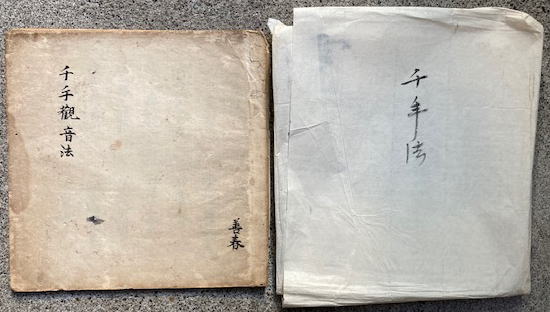 千手觀音法
善春
千手法